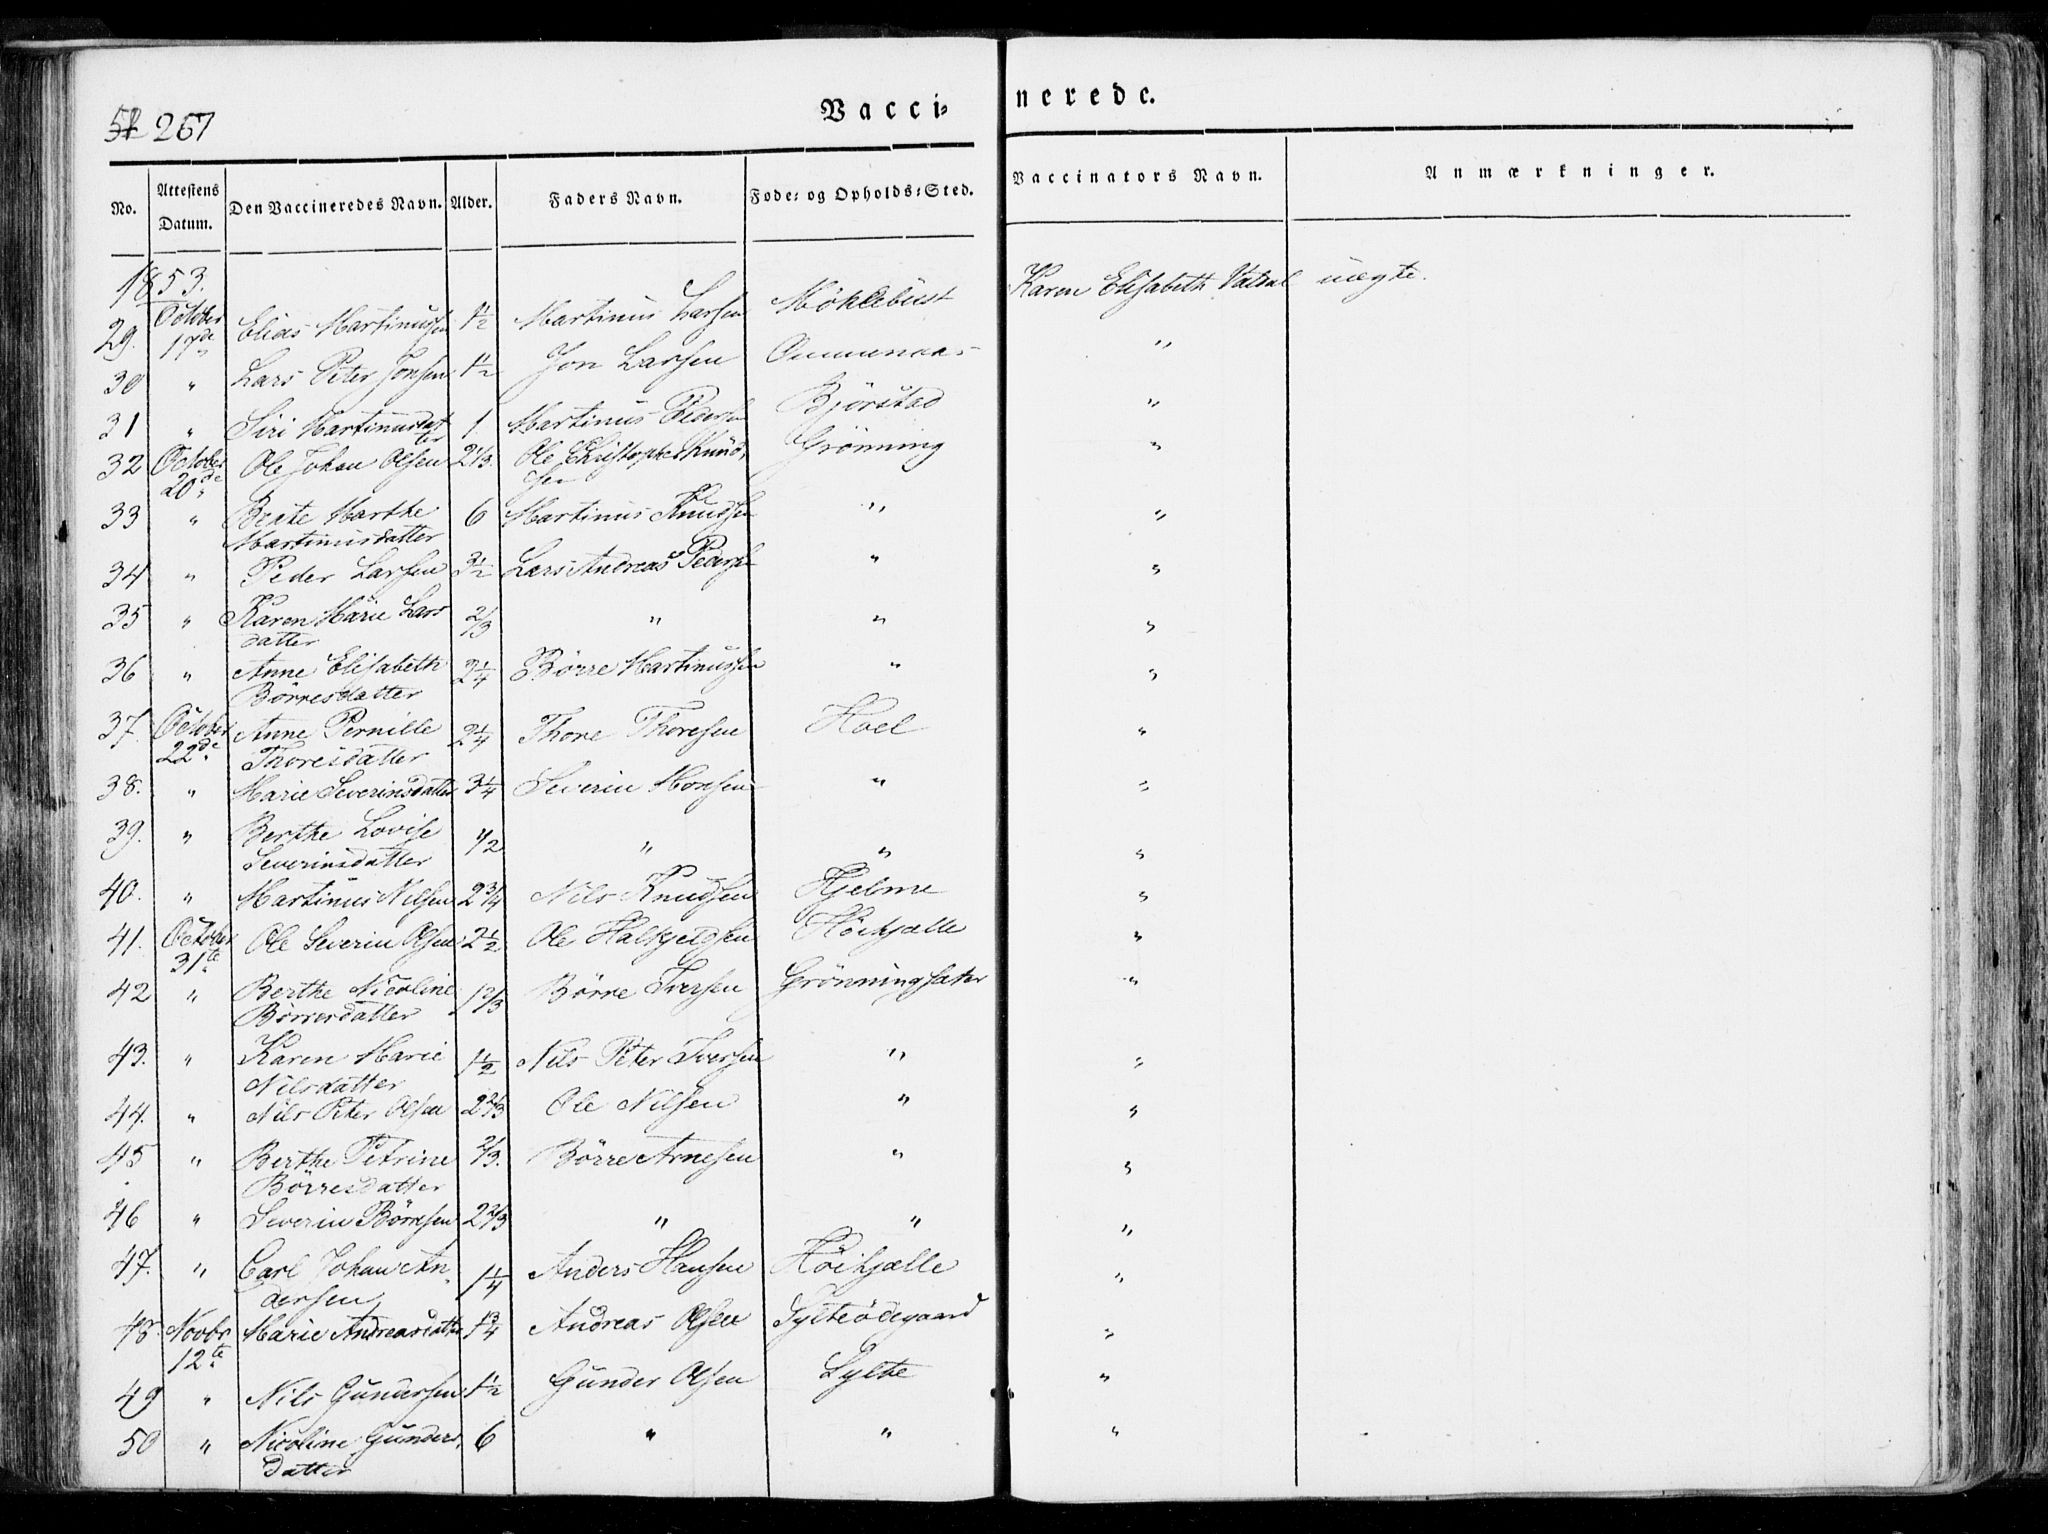 267
Vacci-
nerede.
No. Attestens Datum. Den Vaccineredes Navn. Alder. Faders Navn. Føde- og Opholds-Sted. Vaccinators Navn. Anmærkninger.
1853.
29. October 17de " Elias Martinussen 1½ Martinus Larsen Möklebust Karen Elisabeth Vatdal uægte.
30 " Lars Peter Jonsen 1½ Jon Larsen "
31 " Siri Martinusdatter 1 Martinus Pedersen Björstad "
32 October 20de " Ole Johan Olsen 2⅓. Ole Christopher Knudsen Grönning "
33 " Berte Marthe Martinusdatter 6 Martinus Knudsen " "
34 " Peder Larsen 3½ Lars Andreas Pedersen " "
35 " Karen Marie Larsdatter 2/3 " " "
36 " Anne Elisabeth Börresdatter 2¼ Börre Martinussen " "
37. October 22de " Anne Pernille Thoresdatter 2¼ Thore Thoresen Hoel "
38. " Marie Severinsdatter 3¼ Severin Monsen " "
39. " Berthe Lovise Severinsdatter 1/2 " " "
40. " Martinus Nilsen 2¾ Nils Knudsen Hjelme "
41. October 31te " Ole Severin Olsen 2½ Ole Halkjeldsen Höikjælle "
42 " Berthe Nicoline Börresdatter 1⅔ Börre Iversen Grönningsæter "
43. " Karen Marie Nilsdatter 1½ Nils Peter Iversen " "
44. " Nils Peter Olsen 2⅔ Ole Nilsen " "
45 " Berthe Petrine Börresdatter 2/3. Börre Arnesen " "
46 " Severin Börresen 2⅔ " " "
47. " Carl Johan Andersen 1¼ Anders Hansen Höikjælle "
48. Novbr 12te " Marie Andreasdatter 1¾ Andreas Olsen Sylteödegaard "
49 " Nils Gundersen 1½ Gunder Olsen Sylte "
50 " Nicoline Gundersdatter 6 " " "